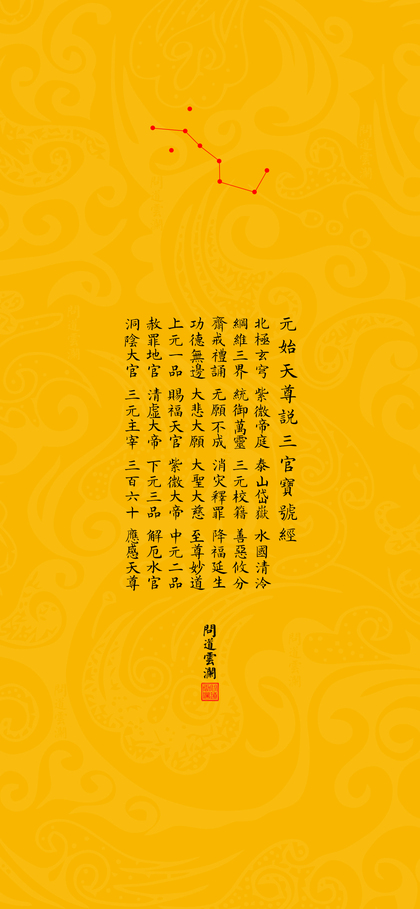 元始天尊説三官寶號經
北極玄穹 紫微帝庭 泰山岱嶽 水國清泠
綱維三界 統御萬靈 三元校籍 善惡攸分
齋戒禮誦 无願不成 消灾釋罪 降福延生
功德無邊 大悲大願 大聖大慈 至尊妙道
上元一品 賜福天官 紫微大帝 中元二品
赦罪地官 清虛大帝 下元三品 解厄水官
洞陰大官 三元主宰 三百六十 應感天尊
問道雲瀾